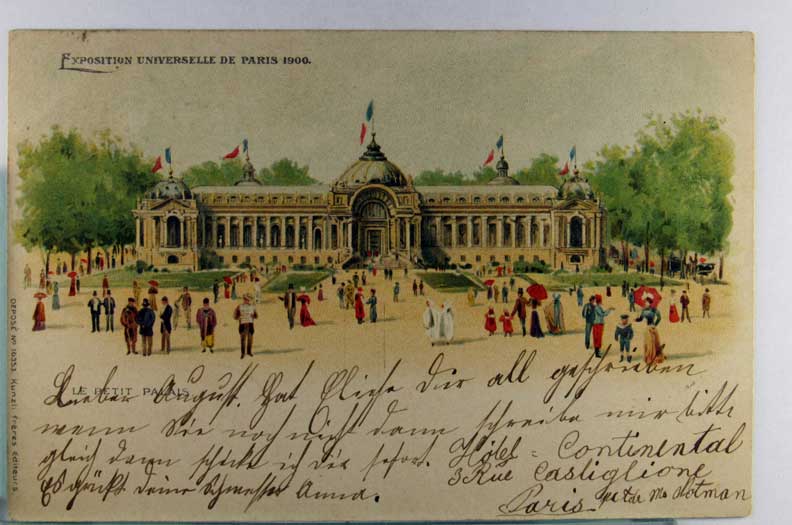 EXPOSITION UNIVERSELLE DE PARIS 1900.
LE PETIT PALAIS
DÉPOSÉ Nº 10353 Kunzli frères éditeurs
Lieber August. Hat Eliese dir all geschrieben
wenn Sie noch nicht dann schreibe mir bitte
gleich dann schicke ich dir sofort.
Es grüßt deine Schwester Anna.
Hôtel = Continental
3 Rue Castiglione
Paris